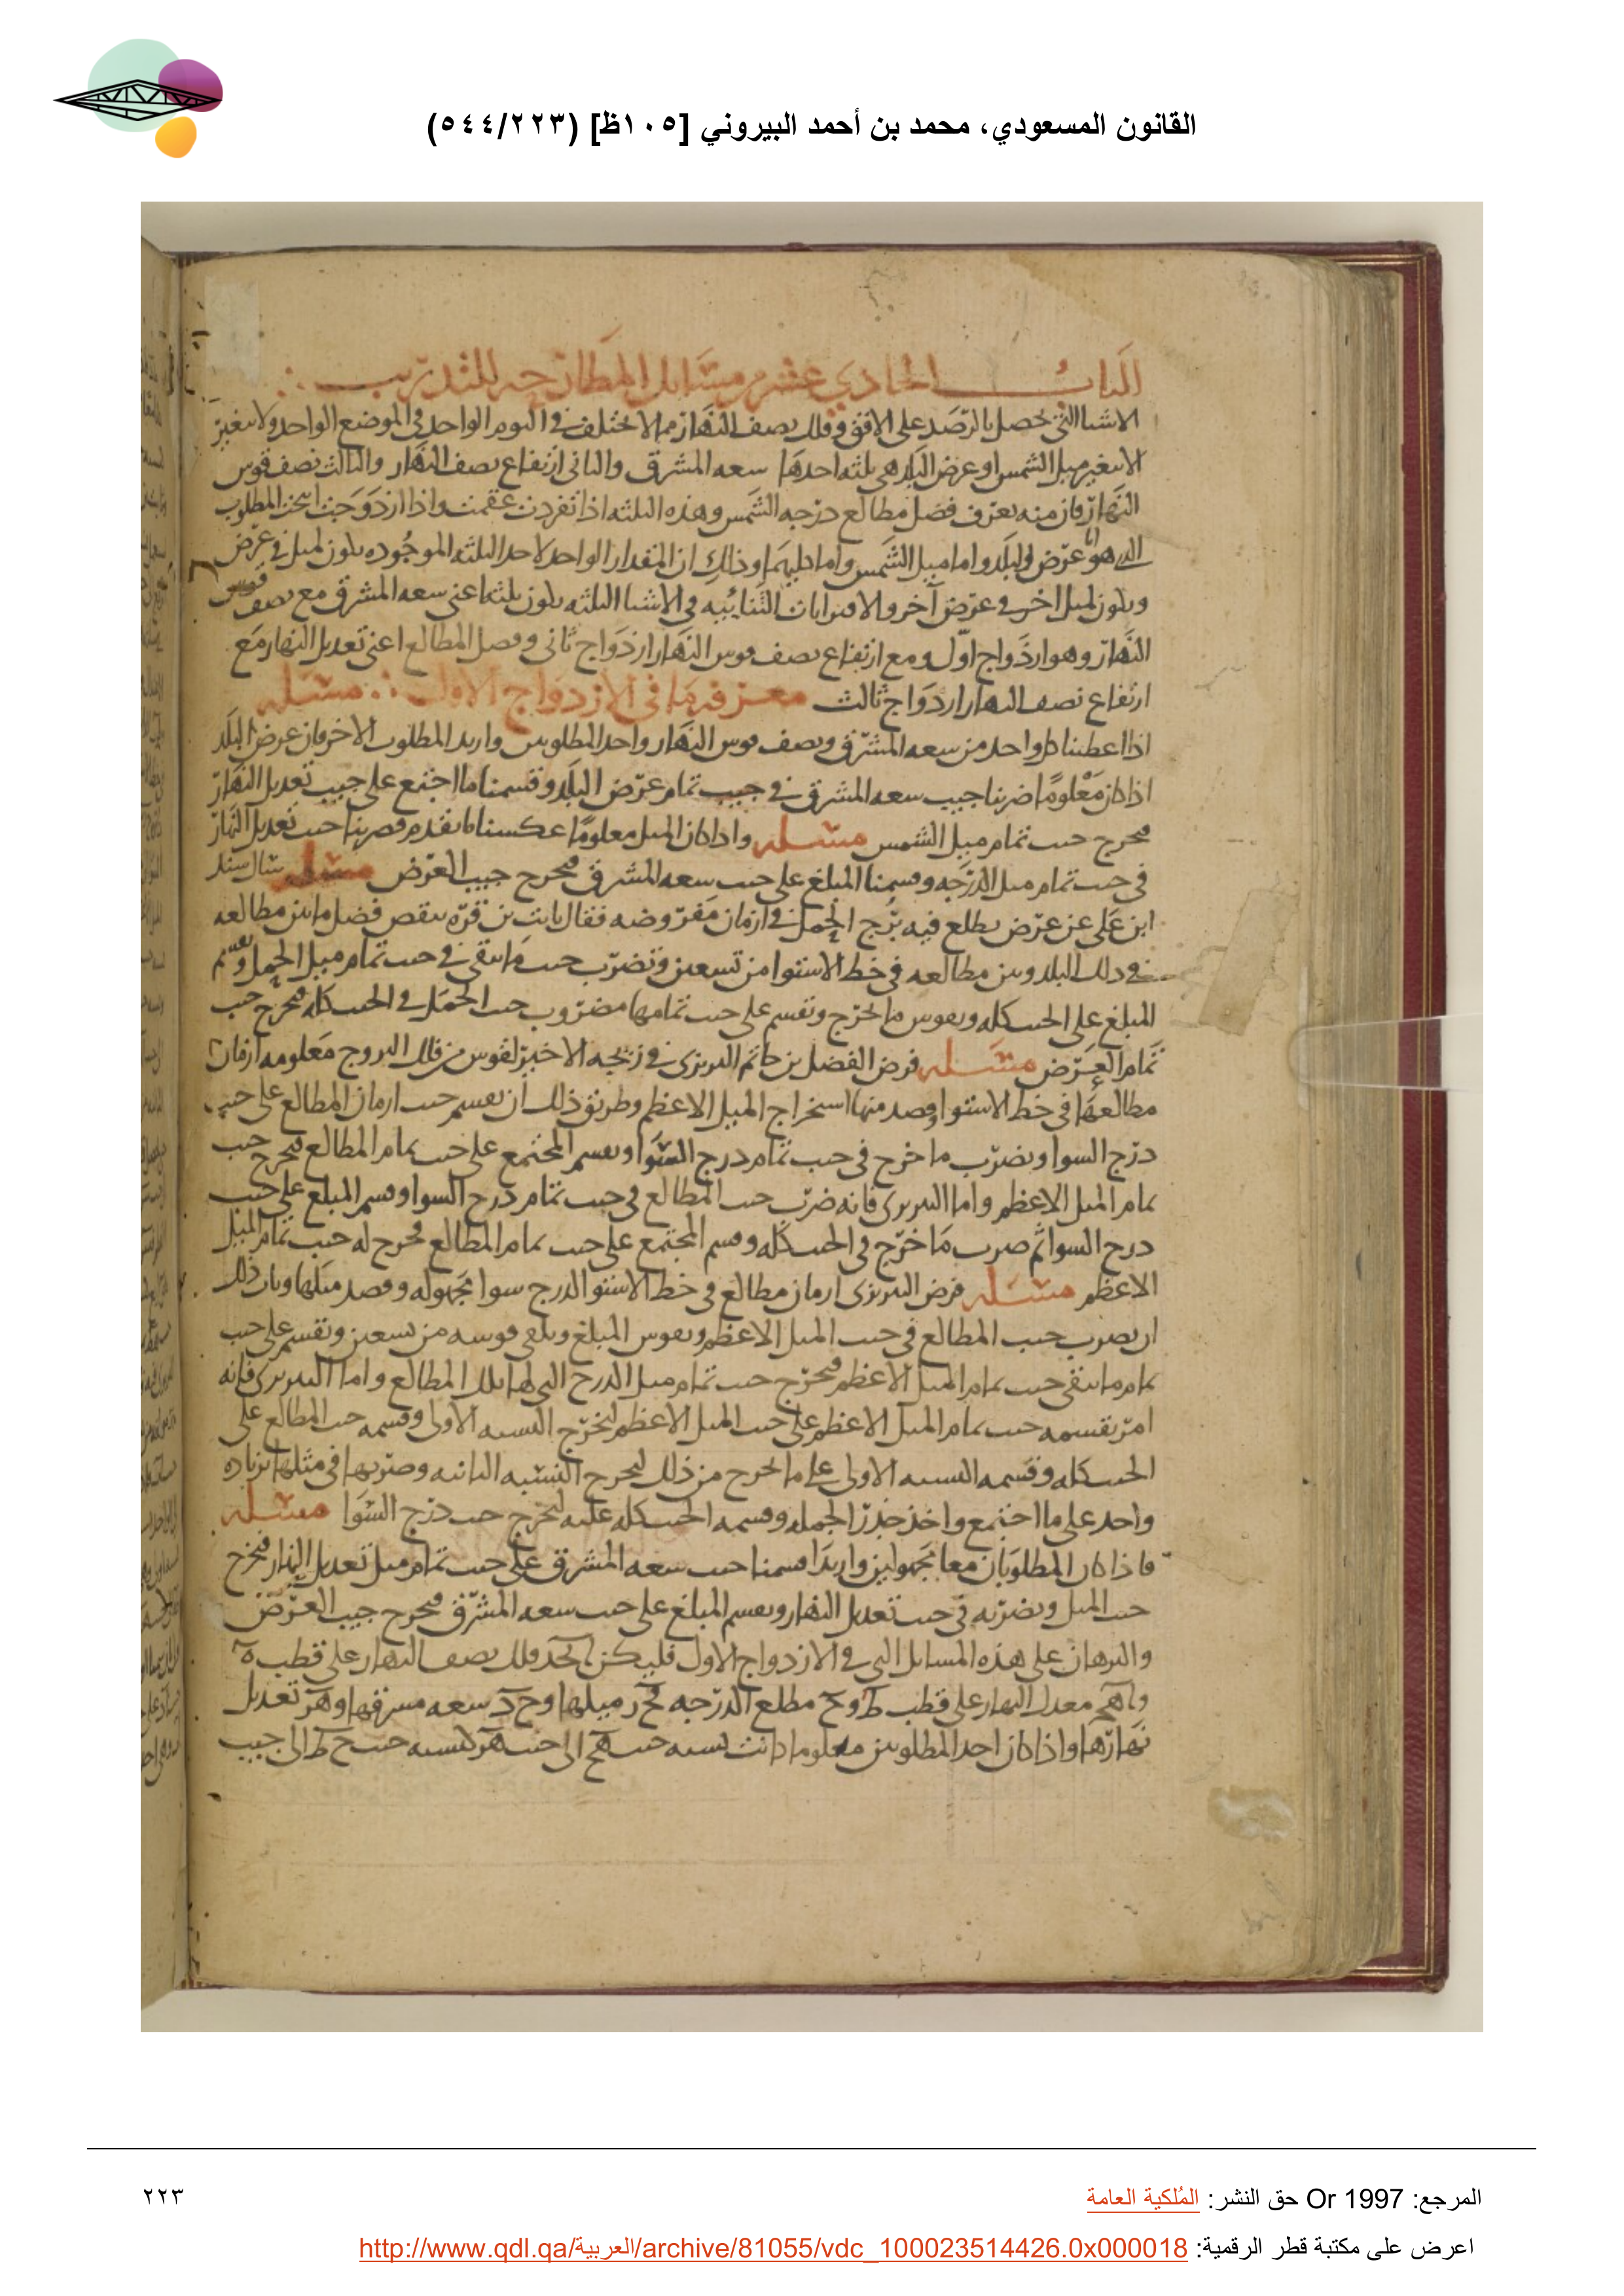 القانون المسعودي، محمد بن أحمد البيروني [١٠٥ظ] (٥٤٤/٢٢٣)
الباب الحادي عشر من مسايل المطارحه للتدريب
الاشيا التي تحصل بالرصد على الافق وفلك نصف النهار مما لا تختلف في اليوم الواحد في الموضع الواحد ولا تتغير
الا بتغير ميل الشمس او عرض البلد هي ثلثه احدها سعه المشرق والثاني ارتفاع نصف النهار والثالث نصف قوس
النهار فان منه يعرف فضل مطالع درجه الشمس وهذه الثلثه اذا تفردت عقمت واذا ازدوجت انتجت المطلوب
الذي هو اما عرض البلد واما ميل الشمس واما كليهما وذلك ان المقدار الواحد لاحد الثلثه الموجوده يكون لميل في عرض
ويكون لميل اخر في عرض آخر والاقترانات الثنائيه في الاشيا الثلثه يكون ثلثا اعني سعه المشرق مع نصف قوس
النهار وهو ازدواج اول ومع ارتفاع نصف قوس النهار ازدواج ثاني وفضل المطالع اعني تعديل النهار مع
ارتفاع نصف النهار ازدواج ثالث معرفه ما في الازدواج الاول مسله
اذا اعطينا كل واحد من سعه المشرق ونصف قوس النهار واحد المطلوبين واريد المطلوب الاخر فان عرض البلد
اذا كان معلوما ضربنا جيب سعه المشرق في جيب تمام عرض البلد وقسمنا ما اجتمع على جيب تعديل النهار
فيخرج جيب تمام ميل الشمس مسله واذا كان الميل معلوما عكسنا ما تقدم فضربنا جيب تعديل النهار
في جيب تمام ميل الدرجه وقسمنا المبلغ على جيب سعه المشرق فيخرج جيب العرض مسله سال سند
ابن على عن عرض يطلع فيه برج الحمل في ازمان مفروضه فقال ثابت بن قره ينقص فضل ما بين مطالعه
في ذلك البلد وبين مطالعه في خط الاستوا من تسعين ونضرب جيب ما يبقى في جيب تمام ميل الحمل ونقسم
المبلغ على الجيب كله ونقوس ما يخرج ونقسم على جيب تمامها مضروب جيب الحمل في الجيب كله فيخرج جيب
تمام العرض مسله فرض الفضل بن حاتم النيريزي في زيجه الاخير لقوس من فلك البروج معلومه ازمان
مطالعها في خط الاستوا وقصد منها استخراج الميل الاعظم وطريق ذلك ان نقسم جيب ازمان المطالع على جيب
درج السوا ونضرب ما خرج في جيب تمام درج السوا ونقسم المجتمع على جيب تمام المطالع فيخرج جيب
تمام الميل الاعظم واما النيريزي فانه ضرب جيب المطالع في جيب تمام درج السوا وقسم المبلغ على جيب
درج السوا ثم ضرب ما خرج في الجيب كله وقسم المجتمع على جيب تمام المطالع فخرج له جيب تمام الميل
الاعظم مسله فرض النيريزي ازمان مطالع في خط الاستوا لدرج سوا مجهوله وقصد ميلها وبان ذلك
ان نضرب جيب المطالع في جيب الميل الاعظم ونقوس المبلغ ونلقي قوسه من تسعين ونقسم على جيب
تمام ما يبقى جيب تمام الميل الاعظم فيخرج جيب تمام ميل الدرج التي لها تلك المطالع واما النيريزي فانه
امر بقسمه جيب تمام الميل الاعظم على جيب الميل الاعظم ليخرج النسبه الاولى وقسمه جيب المطالع على
الجيب كله وقسمه النسبه الاولى على ما يخرج من ذلك ليخرج النسبه الثانيه وضربها في مثلها بزياده
واحد على ما اجتمع واخذ جذر الجمله وقسمه الجيب كله عليه ليخرج جيب درج السوا مسله
فاذا كان المطلوبان معا مجهولين واريدا قسمنا جيب سعه المشرق على جيب تمام ميل تعديل النهار فيخرج
جيب الميل ونضربه في جيب تعديل النهار ونقسم المبلغ على جيب سعه المشرق فيخرج جيب العرض
والبرهان على هذه المسايل التي في الازدواج الاول فليكن فلك نصف النهار على قطب ه
معدل النهار على قطب ط و ح مطلع الدرجه ح ر ميلها و ح سعه مشرقها و ه ر تعديل
نهارها واذا كان احد المطلوبين معلوما كانت نسبه جيب ه ح الى جيب ه ر كنسبه جيب ح ط الى جيب
المرجع: Or 1997 حق النشر: المُلكية العامة
٢٢٣
اعرض على مكتبة قطر الرقمية: http://www.qdl.qa/العربية/archive/81055/vdc_100023514426.0x000018